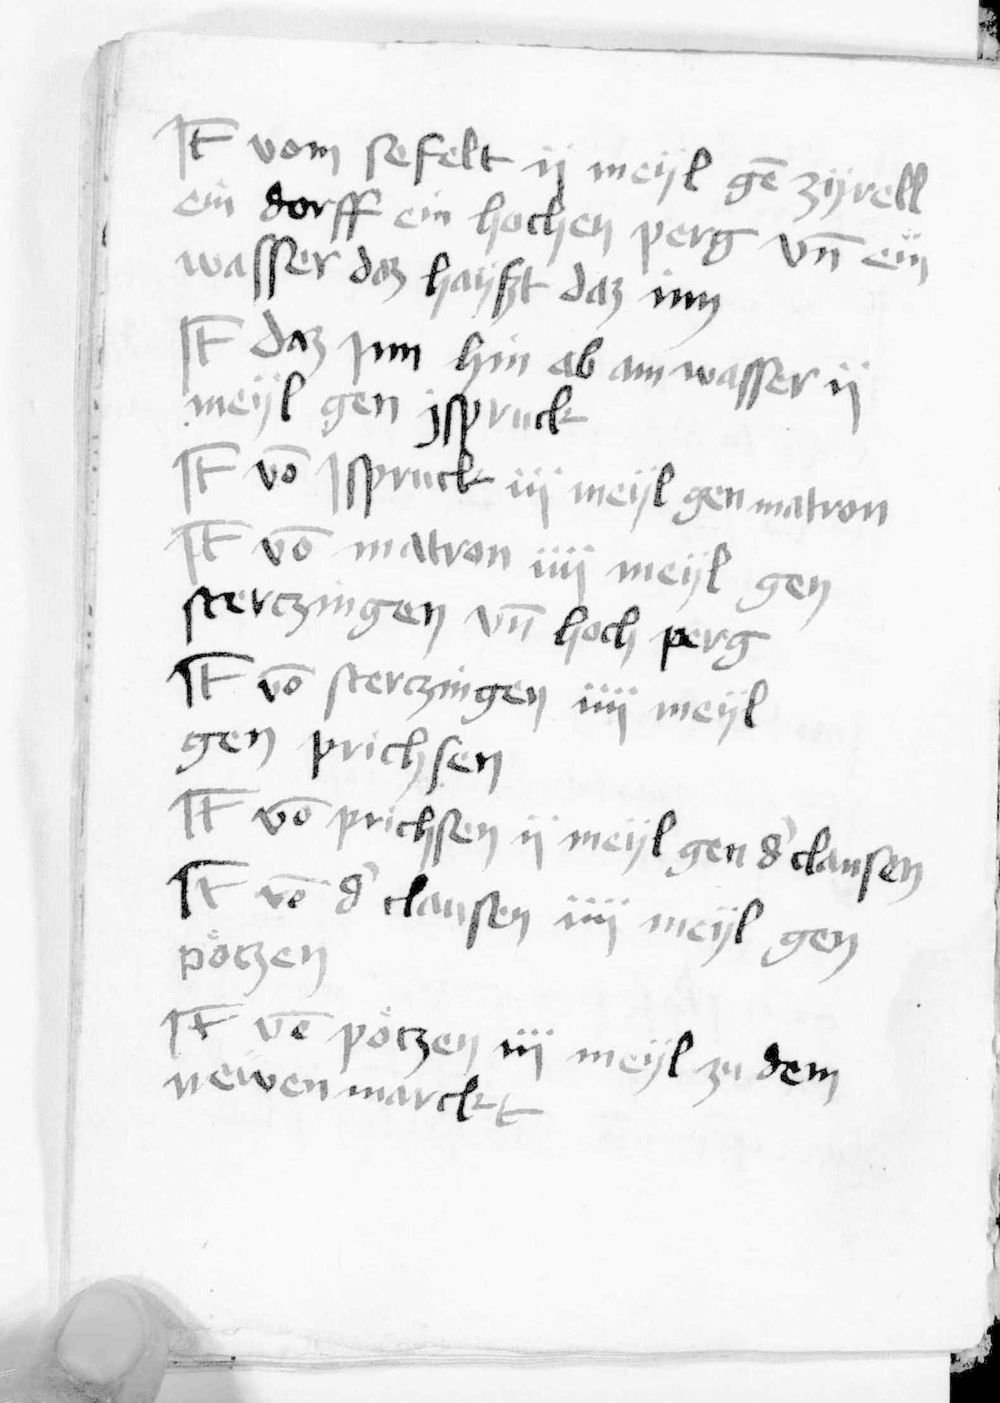 It̄ vom sefelt ij meijl gē zijrell
ein dorff ein hochen perg vn̄ ein
wasser daz haijszt daz inn
It̄ daz jnn hin ab am wasser ij
meijl gen jspruck
It̄ vō Jspruck iij meijl gen matron
It̄ vō matron iiij meijl gen
sterczingen vn̄ hoch perg
It̄ vō sterczingen iiij meijl
gen prichsen
It̄ vō prichsen ij meijl gen d' clausen
It̄ vō d' clausen iiij meijl gen
pötzen
It̄ vō pötzen iij meijl zu dem
newen marckt